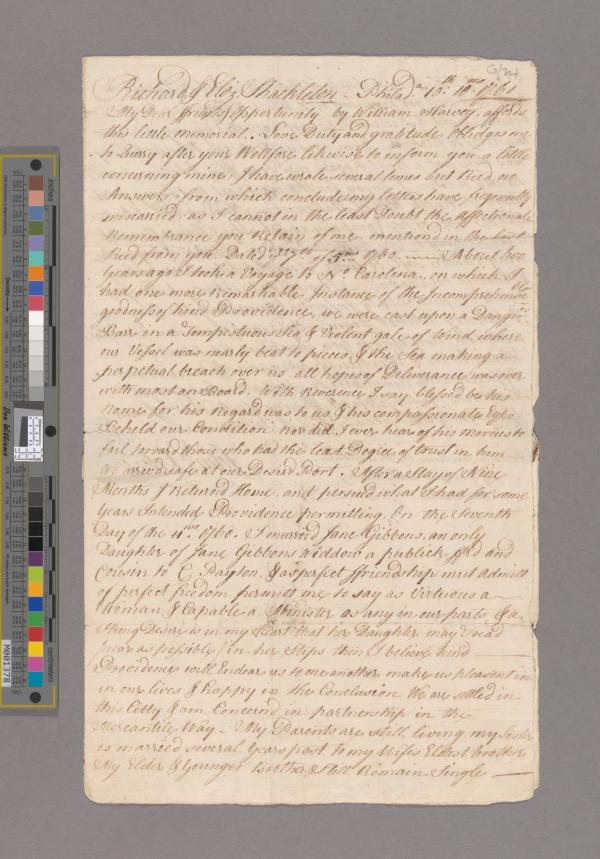 G/24
Richard & Eliz Shackleton - Philad.a 10.th 10.mo 1761
My Dear ffriends, Opportunity by William Harvey, affords
this little memorial. Love Duty and gratitude Obbidges me
to Querry after your Wellfare likewise to inform you a little
concerning mine. I have wrote several times but rec'ed no
Answers, from which conclude my letters have frequently
miscarried, as I cannot in the least Doubt the affectionate
Remembrance you Retain of me, mention'd in the last
rec'ed from you. Dated of 5.mo 1760. About two
Years ago I took a Voyage to N.o Carolina, on which I
had one more Remarkable Instance of the Incomprehensible
goodness of kind Providence, we were cast upon a Dang.rous
Barr in a Tempestious Sea & Violent gale of Wind where
our Vessel was nearly beat to pieces & the Sea making a
perpetual breach over us all hopes of Deliverance was over
with most on Board. With Reverence I say, blessed be his
Name for his Regard was to us & his compassionate Eyes
Beheld our Condition nor did I ever hear of his mercies to
fail toward those who had the least Degree of trust in him
we arrived safe at our Desir'd Port. After a Stay of Nine
Months I Return'd Home and persued what I had for some
Years Intended Providence permitting. On the Seventh
Day of the 11.mo 1760. I married Jane Gibbons, an only
Daughter of Jane Gibbons Widdow a publick ffr'd and
Cousin to C. Payton, & as perfect ffriendship must admitt
of perfect freedom permitt me to say as Virtuous a
Woman & Capable a Minister as any in our parts & a
Strong Desire is in my Heart that her Daughter may tread
near as possible in her Steps then I believe kind
Providence will Endear us to one another make us pleasent in
in our lives & happy in the Conclusion We are settled in
this Citty & am Concern'd in partnership in the
Mercantile Way. My Parents are still living, my Sister
is married several Years past to my Wifes Eldest brother
My Elder & Younger Brothers Still Remain Single
inches
centimeters
Don Williams
M001378